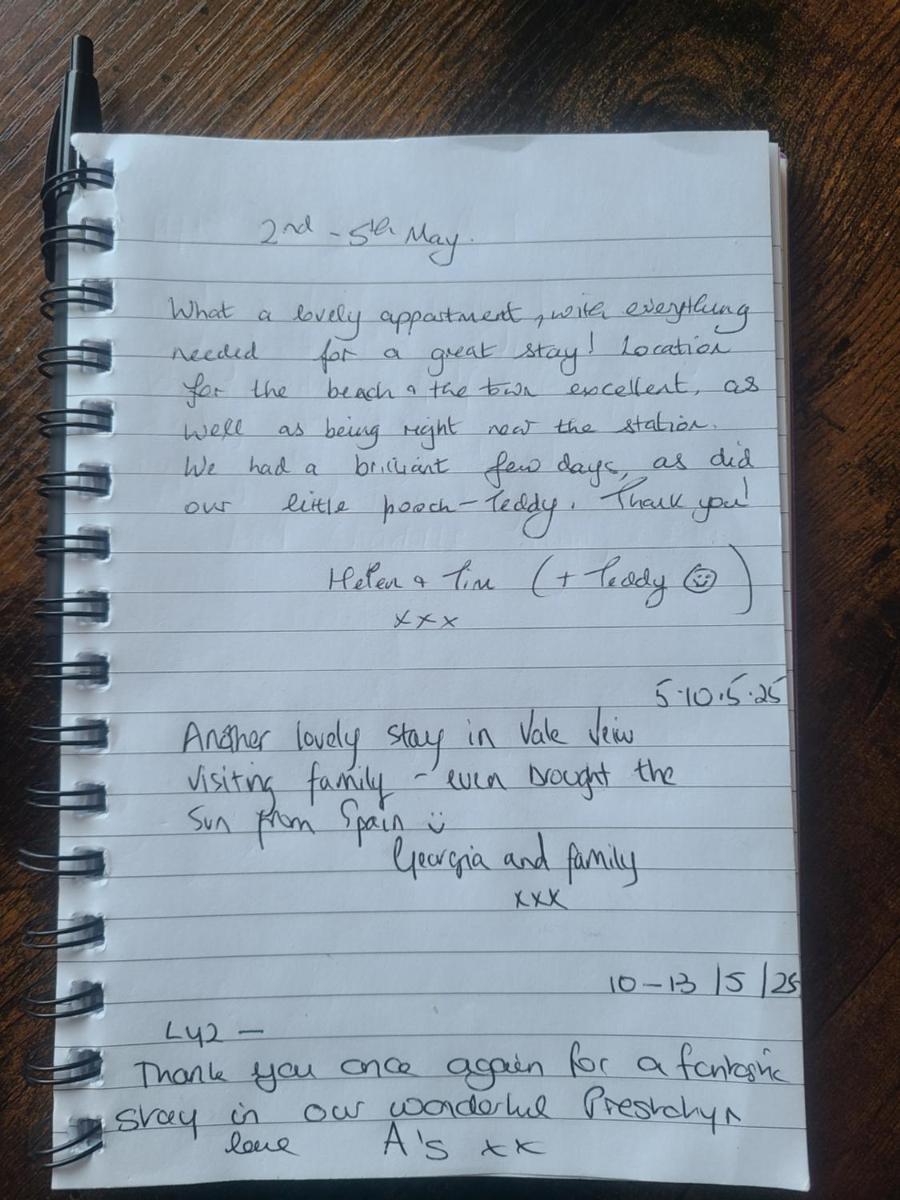 2nd - 5th May.
What a lovely appartment, with everything
needed for a great stay! Location
for the beach & the town excellent, as
well as being right near the station.
We had a brilliant few days, as did
our little pooch - Teddy. Thank you!
Helen & Tim (+ Teddy ☺)
xxx
5.10.5.25
Another lovely stay in Vale Veiw
visiting family - even brought the
Sun from Spain ü
Georgia and family
xxx
10-13/5/25
Thank you once again for a fantastic
stay in our wonderful Prestatyn
love A's xx